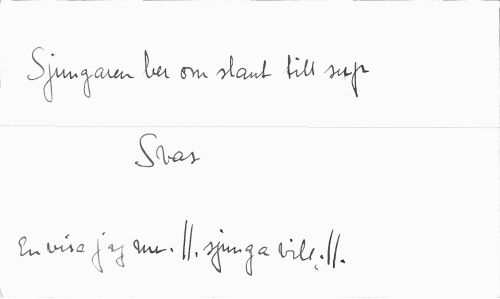 Sjungaren ber om slant till sup
Svar
En visa jag nu .||. sjunga vill .||.